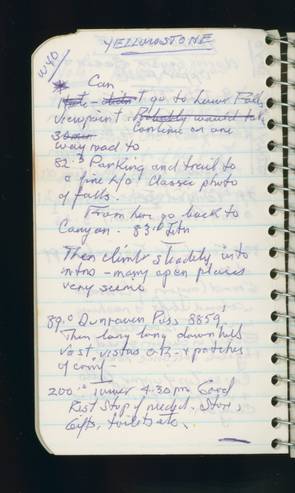 YELLOWSTONE
WYO
* Can
Note - didn't go to Lower Falls
viewpoint - Probably would take
30 min Continue on one
way road to
82.3 Parking and trail to
a fine k/o! Classic photo
of falls.
From here go back to
Canyon - 83.0 Jctn
Then climb steadily into
mtns - many open places
very scenic
89.0 Dunraven Pass 8859,
Then long long down hill
vast vistas patches
of conif-
200. 4:30 pm Good
Rest Stop if needed. Store,
Gifts, toilets etc.